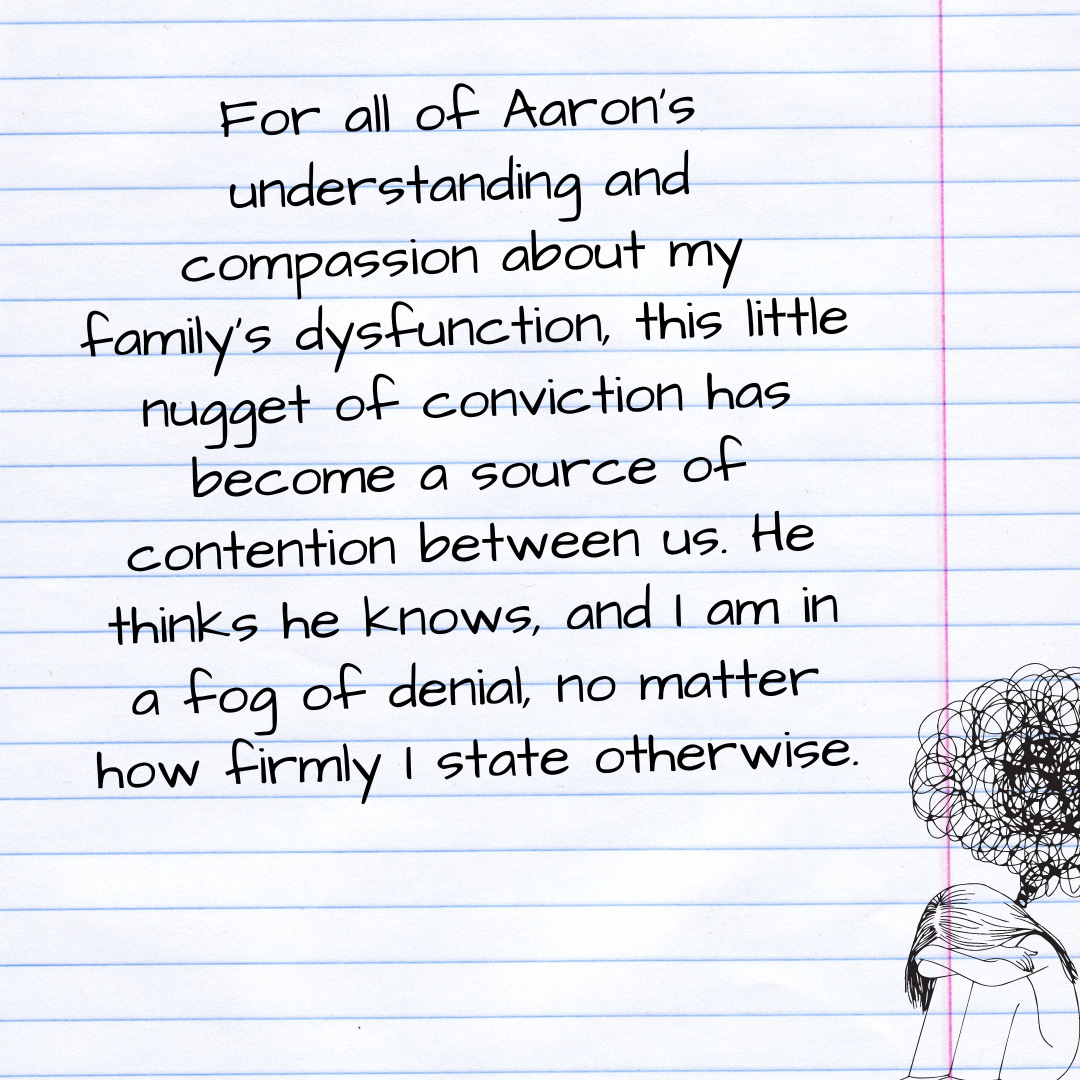 For all of Aaron's
understanding and
compassion about my
family's dysfunction, this little
nugget of conviction has
become a source of
contention between us. He
thinks he knows, and I am in
a fog of denial, no matter
how firmly I state otherwise.